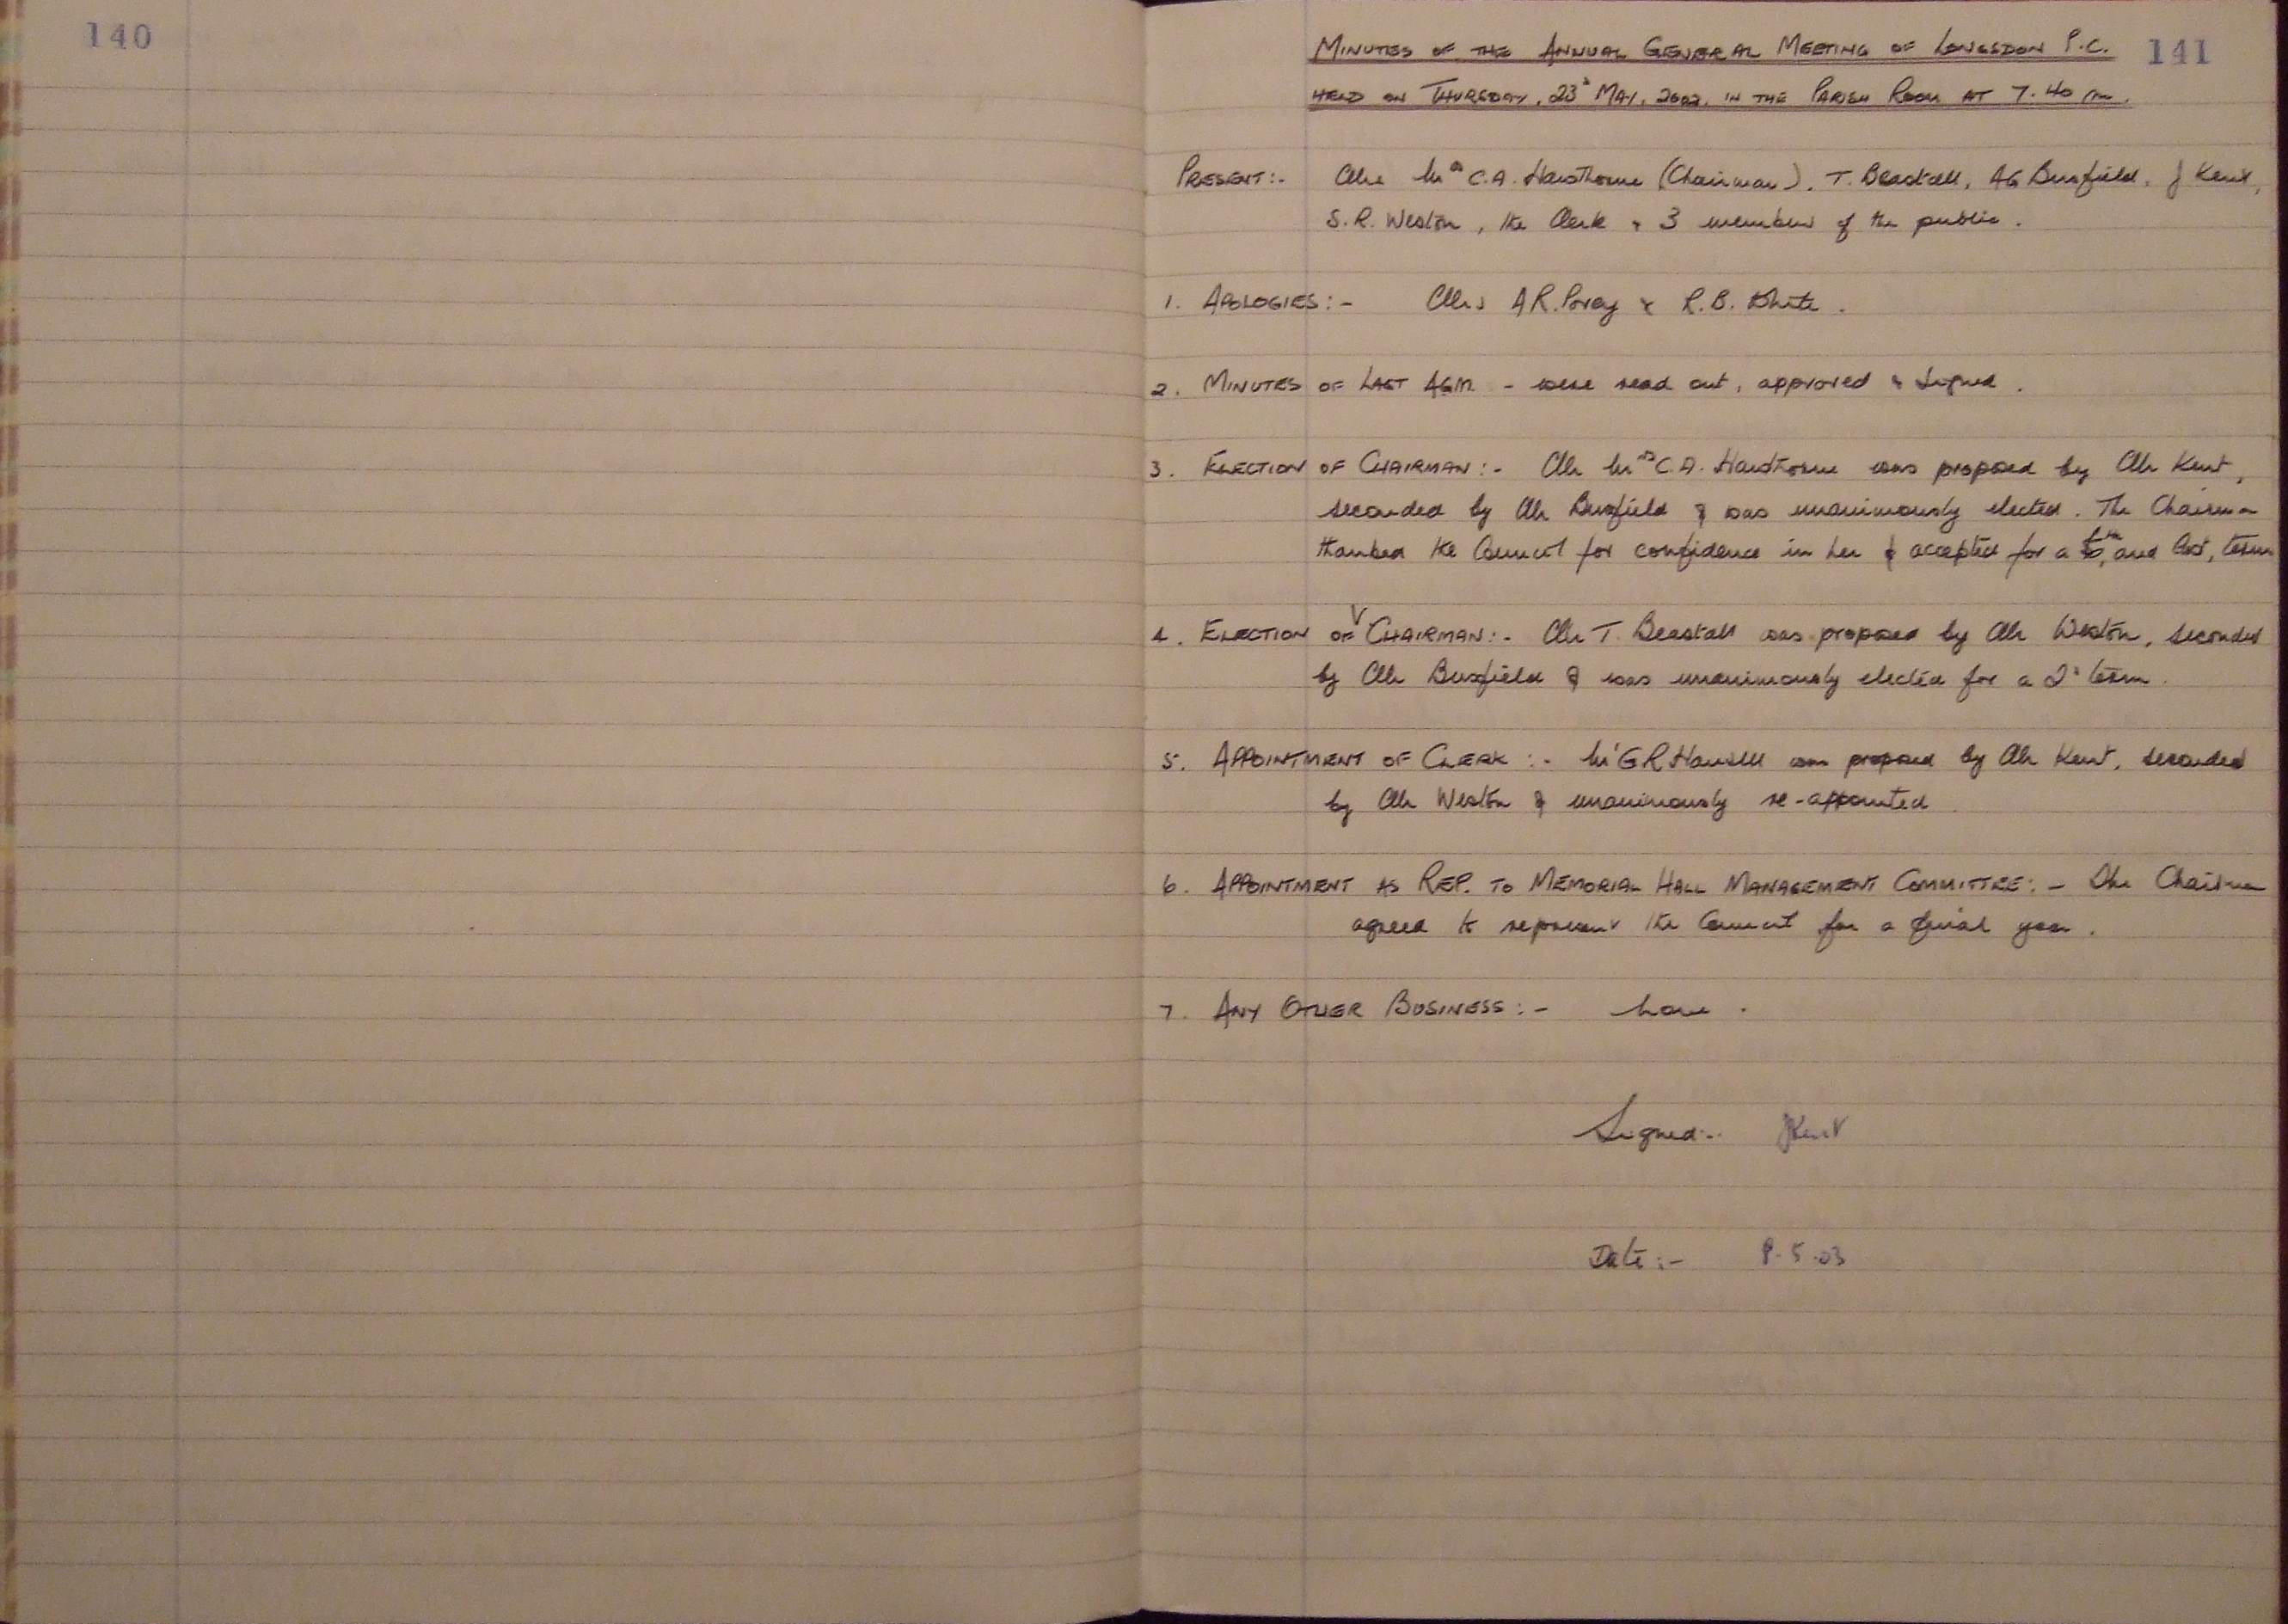 140
MINUTES OF THE ANNUAL GENERAL MEETING OF LONGSDON P.C. 141
HELD ON THURSDAY, 23ᵈ MAY, 2002, IN THE PARISH ROOM AT 7.40 pm.
PRESENT:- Cllrs Mʳˢ C.A. Hawthorne (Chairman), T. Beastall, AG Busfield, J Kent,
S.R. Weston, the Clerk & 3 members of the public.
1. APOLOGIES:- Cllrs A R. Povey & R.B. White.
2. MINUTES OF LAST AGM - were read out, approved & signed.
3. ELECTION OF CHAIRMAN:- Cllr Mʳˢ C.A. Hawthorne was proposed by Cllr Kent,
seconded by Cllr Busfield & was unanimously elected. The Chairman
thanked the Council for confidence in her & accepted for a and last, term
4. ELECTION OF V CHAIRMAN:- Cllr T. Beastall was proposed by Cllr Weston, seconded
by Cllr Busfield & was unanimously elected for a 2ᵈ term.
5. APPOINTMENT OF CLERK:- Mʳ G R was proposed by Cllr Kent, seconded
by Cllr Weston & unanimously re-appointed.
6. APPOINTMENT AS REP. TO MEMORIAL HALL MANAGEMENT COMMITTEE:- The Chairman
agreed to represent the Council for a final year.
7. ANY OTHER BUSINESS:- None.
Signed:- J Kent
Date:- 8.5.03